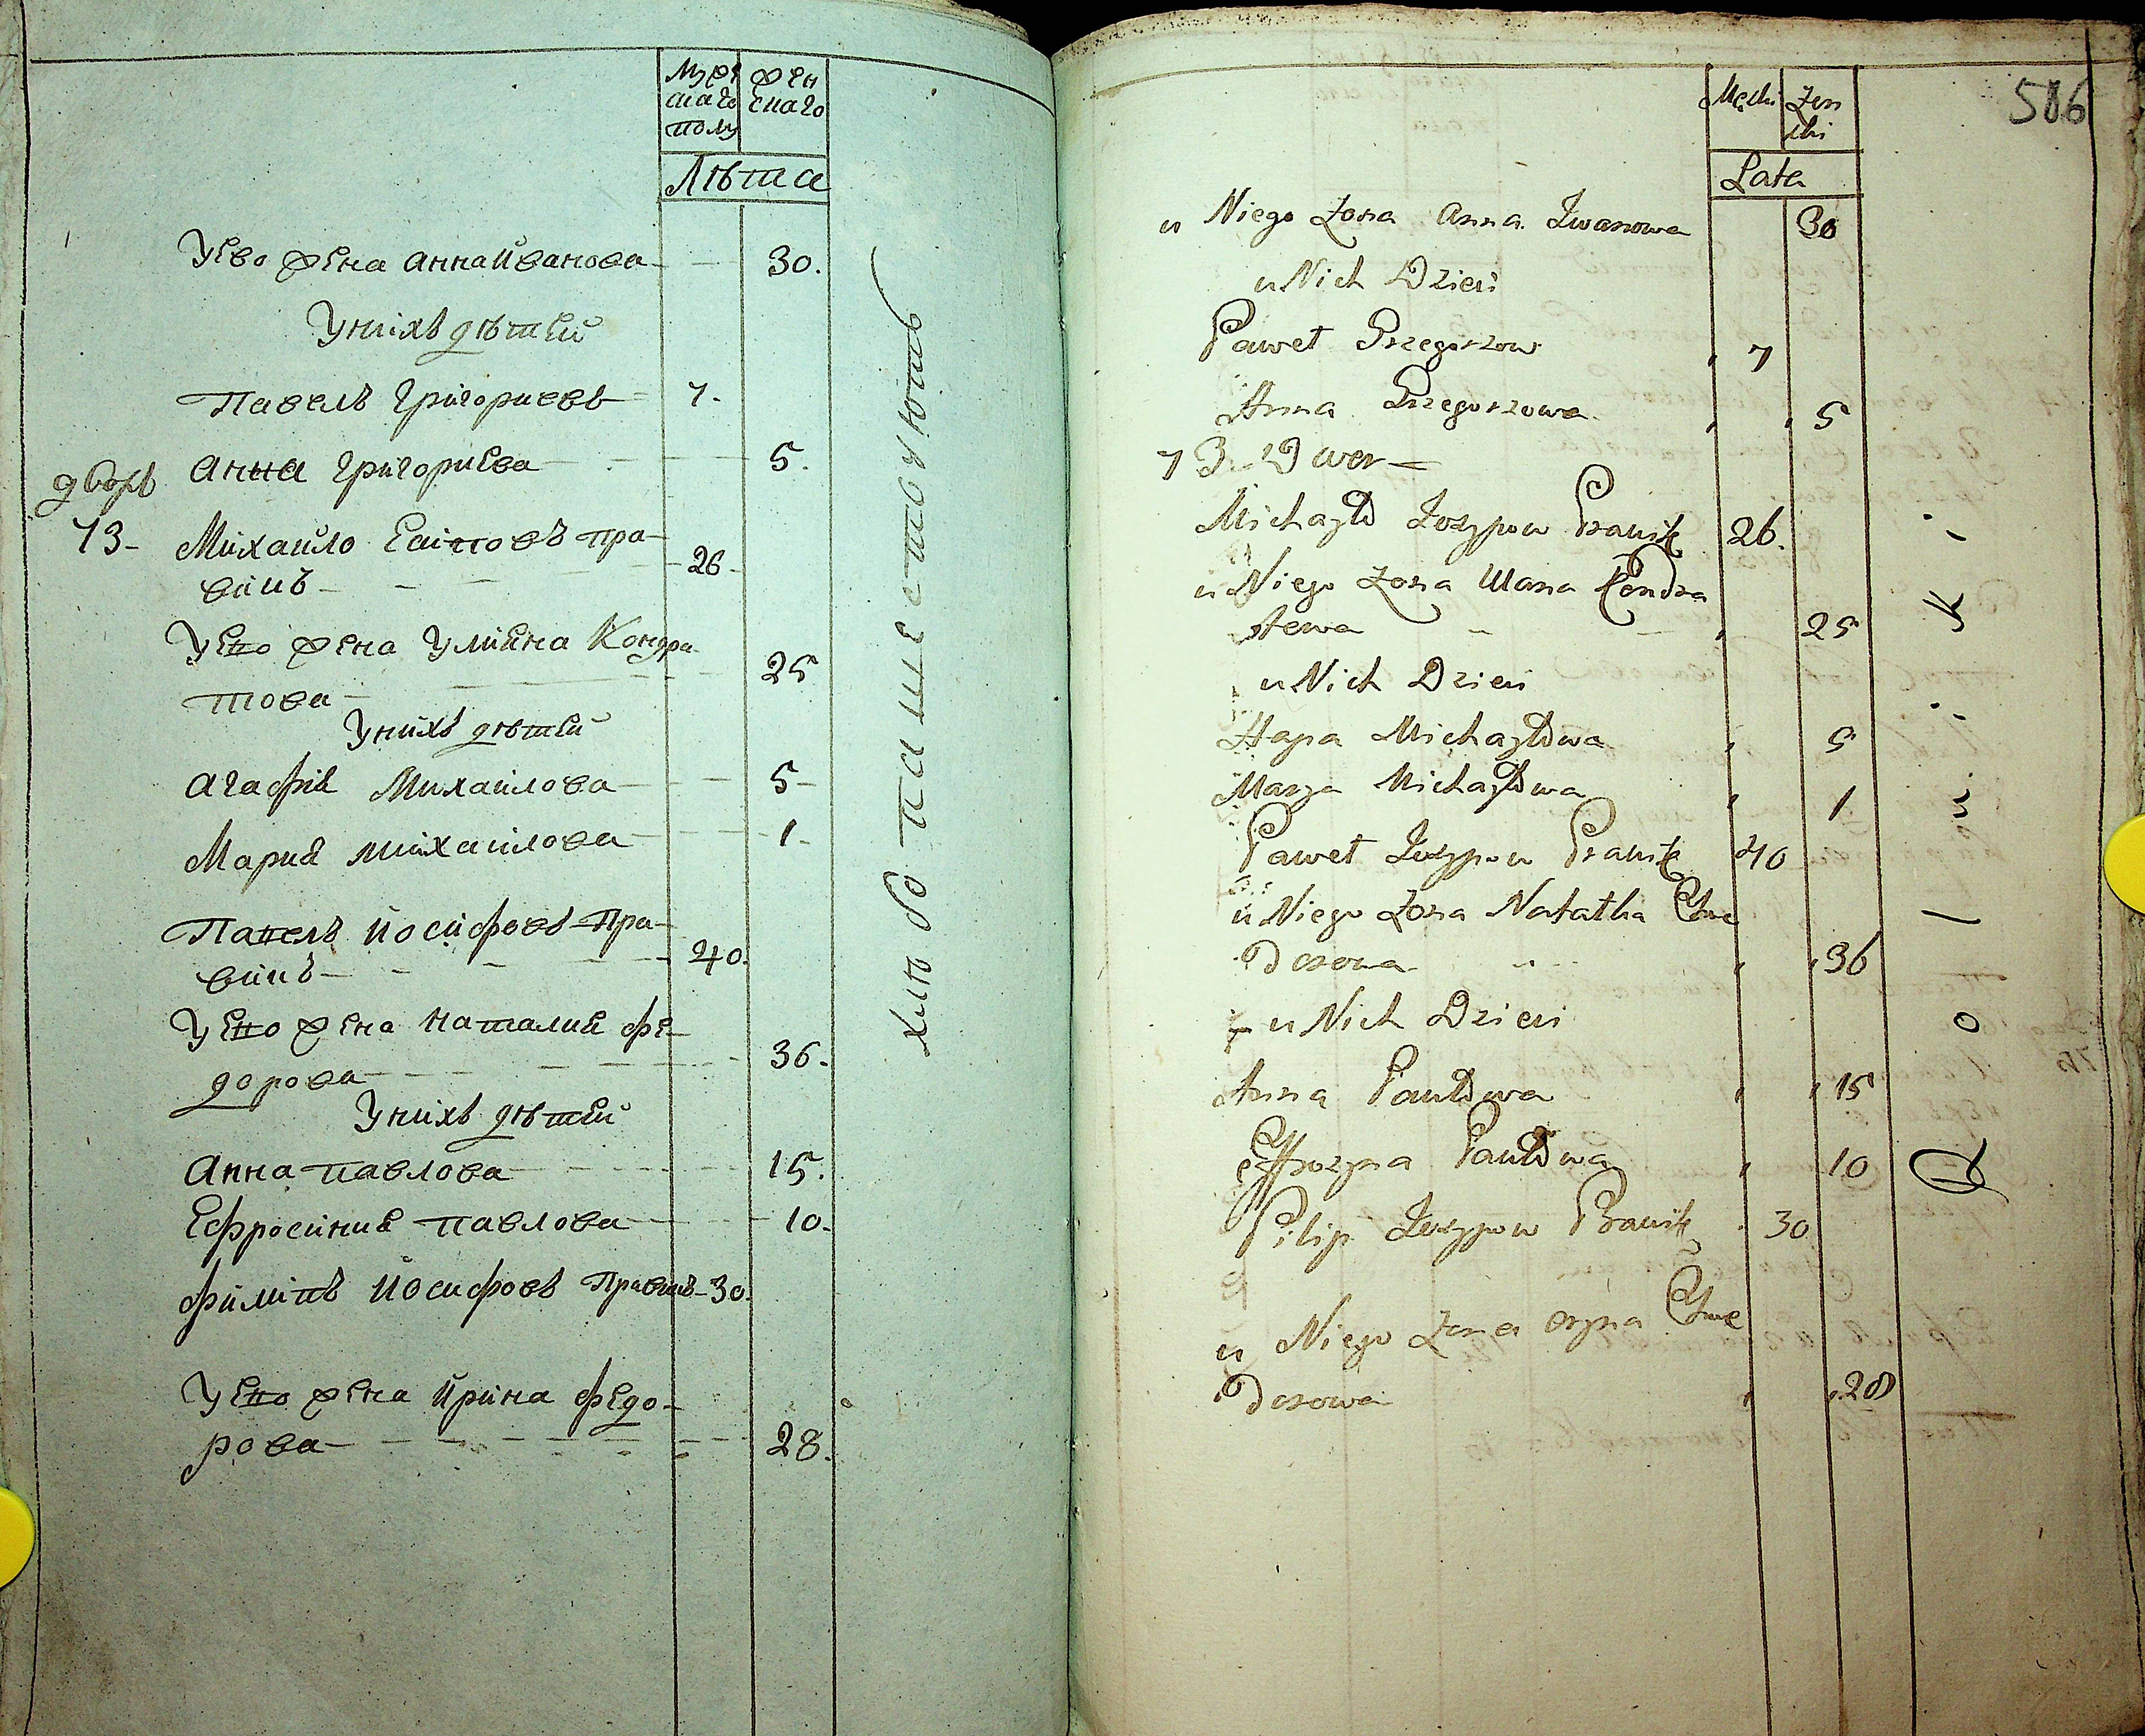 Мужескаго полу
Женскаго
Лѣта
Уево жена Анна Иванова 30.
Унихъ дѣтей
Павелъ Григориевъ 7.
Анна Григориева 5.
дворъ
13 - Михайло Есиповъ Пра-
викъ 26.
Уево жена Улиана Кондра-
това 25
Унихъ дѣтей
Агафиа Михайлова 5 -
Мариа Михайлова 1 -
Павелъ Иосифовъ Пра-
викъ 40.
Уево жена Наталиа Фе-
дорова 36.
Унихъ дѣтей
Анна Павлова 15.
Ефросиниа Павлова 10.
Филипъ Иосифовъ Правикъ - 30.
Уево жена Ирина Федо-
рова 28.
хлѣбопашествуютъ
586
Męski
Żenski
Lata
u Niego Żona Anna Iwanowa 30
u Nich Dzieci
Paweł Grzegorzow 7
Anna Grzegorzowa 5
13 Dwor
Michayło Jozypow Prawik 26.
u Niego Żona Ulana Kondra
tewa 25
u Nich Dzieci
Hapa Michayłowa 5
Marya Michayłowa 1
Paweł Jozypow Prawik 40
u Niego Żona Natalka Chwe
dorowa 36
u Nich Dzieci
Anna Pawłowa 15
Effrozyna Pawłowa 10
Pilip Jozypow Prawik 30
u Niego Żona Oryna Chwe
dorowa 28
Rolniki